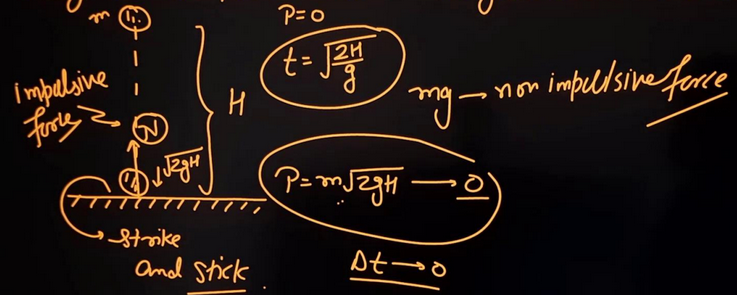 m
P=0
t = √(2H/g)
impulsive
force
N
H
mg → non impulsive force
↓√2gH
P = m√2gH → 0
strike
and stick.
Δt → 0